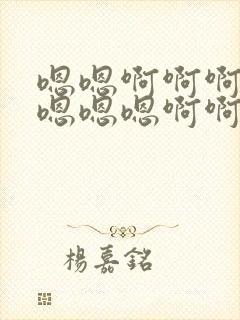 嗯嗯啊啊啊
嗯嗯嗯啊啊
楊嘉銘